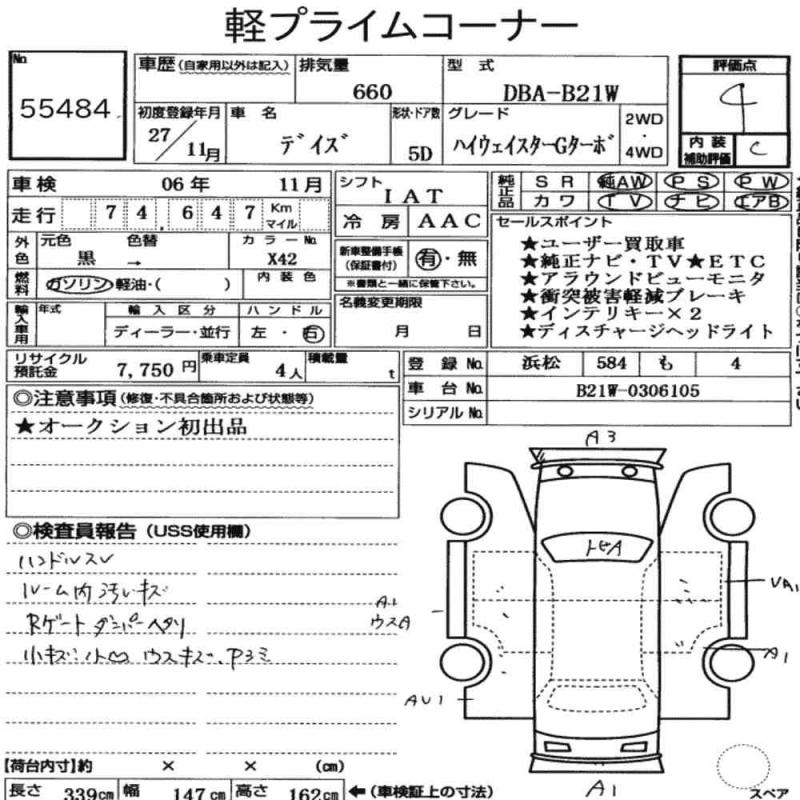 軽プライムコーナー
No. 55484
車歴 (自家用以外は記入) 排気量 660 型式 DBA-B21W 評価点 4
初度登録年月 27/11月 車名 デイズ 形状・ドア数 5D グレード ハイウェイスターGターボ 2WD・4WD 内装補助評価 C
車検 06年 11月 シフト IAT 純正品 SR 純AW PS PW
走行 74,647 Km マイル 冷房 AAC カワ TV ナビ エアB
外色 元色 黒 色替 → カラーNo. X42 新車整備手帳 (保証書付) 有・無
※書類と一緒に保管下さい。
燃料 ガソリン・軽油・( ) 内装色 名義変更期限 月 日
輸入車用 年式 輸入区分 ディーラー・並行 ハンドル 左・右
セールスポイント
★ユーザー買取車
★純正ナビ・TV★ETC
★アラウンドビューモニタ
★衝突被害軽減ブレーキ
★インテリキー×2
★ディスチャージヘッドライト
リサイクル預託金 7,750円 乗車定員 4人 積載量 t
登録No. 浜松 584 も 4
車台No. B21W-0306105
シリアルNo.
◎注意事項 (修復・不具合箇所および状態等)
★オークション初出品
◎検査員報告 (USS使用欄)
ハンドルスレ
ルーム内汚れキズ
Rゲートダンパーヘタリ
小キズ 小凹 ウスキズ
A3
トビA
A1
ウスA
UA1
A1
AU1
A1
スペア
【荷台内寸】約 × × (cm)
長さ 339cm 幅 147cm 高さ 162cm ←(車検証上の寸法)